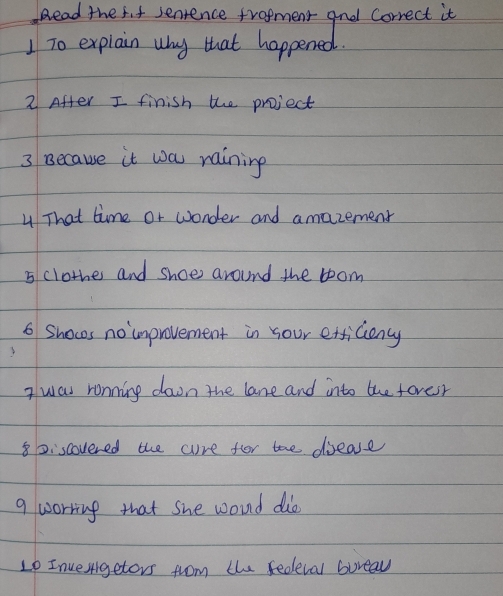 Read the f.f sentence fragment and correct it
1 To explain why that happened.
2 After I finish the project
3 Because it was raining
4 That time of wonder and amazement
5 Clothes and shoes around the room
6 Shows no improvement in your efficiency
7 Was running down the lane and into the forest
8 Discovered the cure for the disease
9 Worring that she would die
10 Investigators from the federal bureau